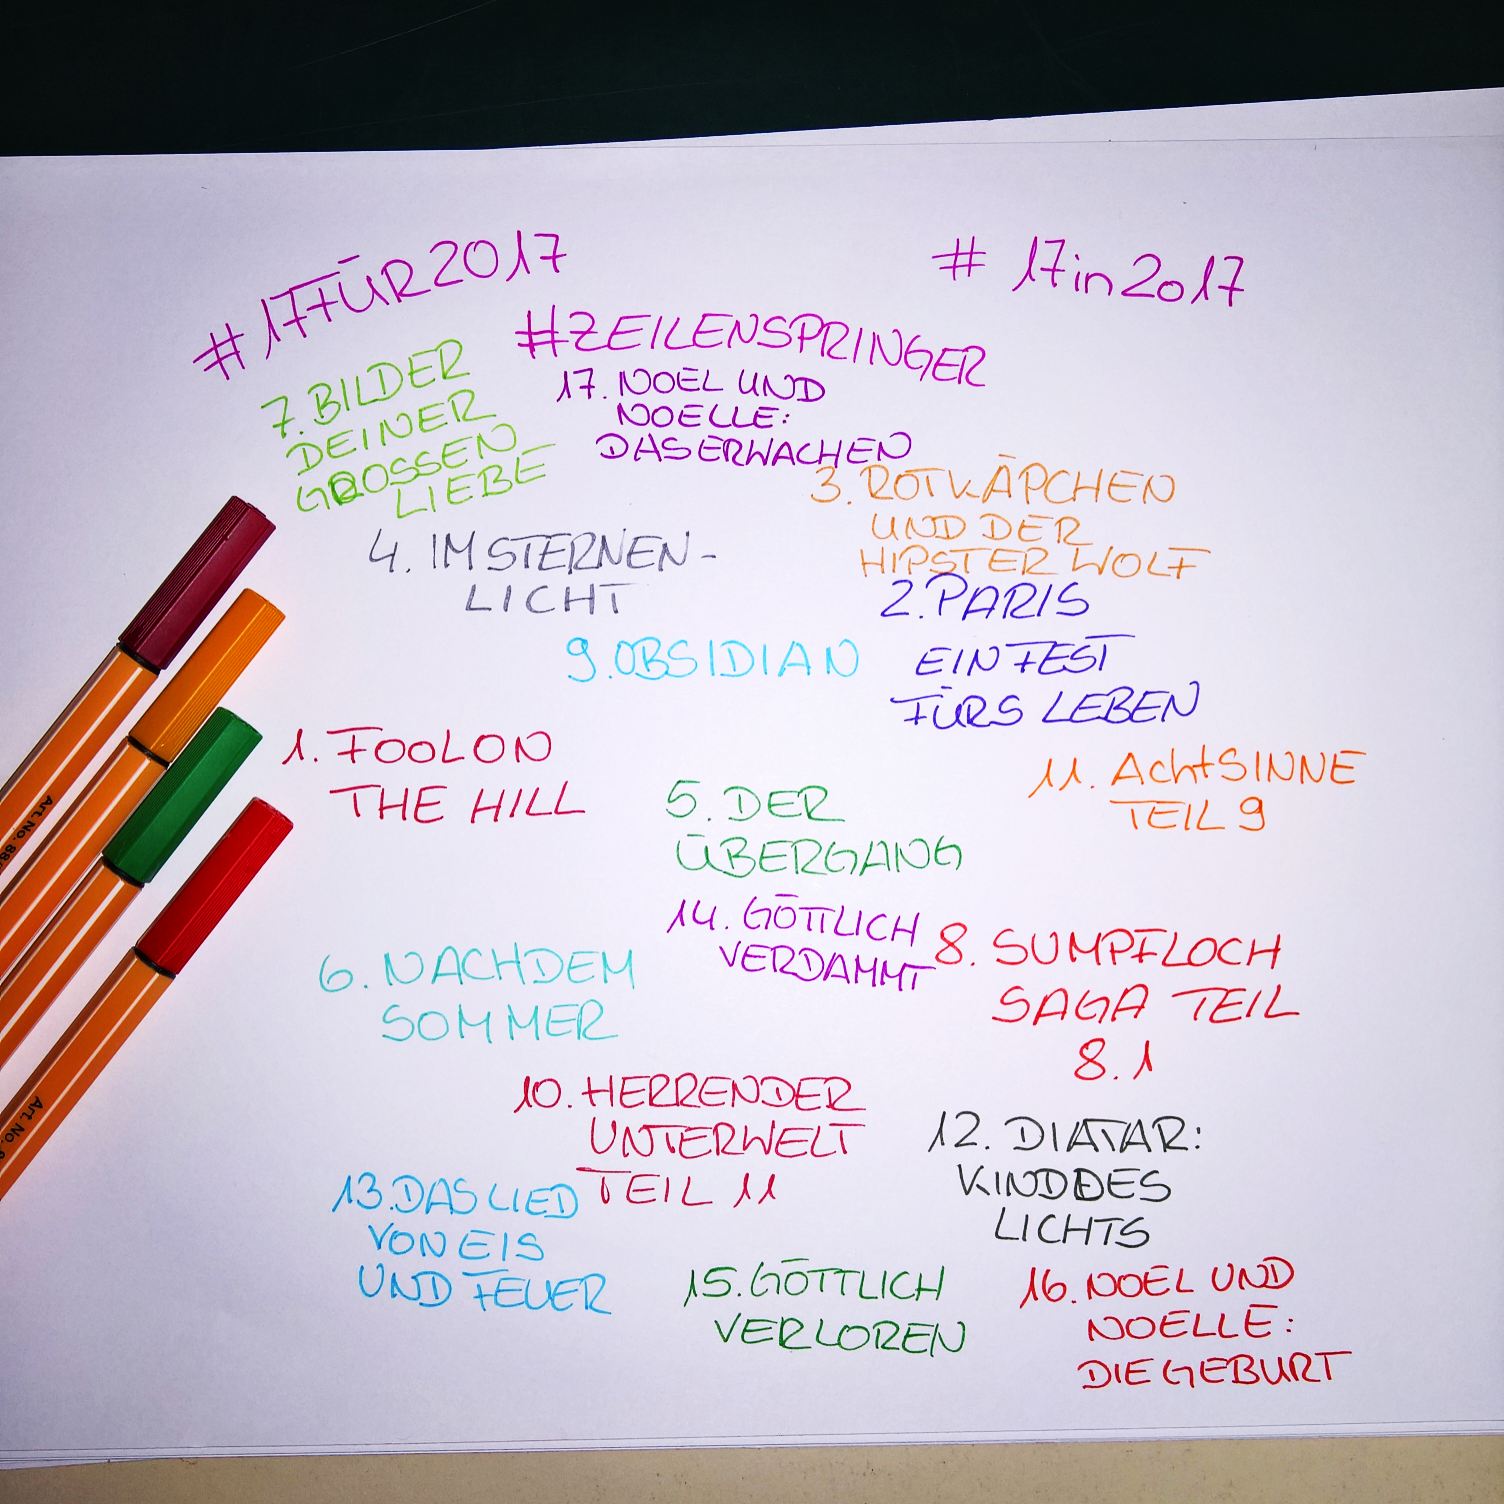 #17FÜR2017
# 17in2017
#ZEILENSPRINGER
7. BILDER
DEINER
GROSSEN
LIEBE
17. NOEL UND
NOELLE:
DAS ERWACHEN
3. ROTKÄPCHEN
UND DER
HIPSTER WOLF
4. IM STERNEN-
LICHT
2. PARIS
EIN FEST
FÜRS LEBEN
9. OBSIDIAN
1. FOOL ON
THE HILL
11. AchtSINNE
TEIL 9
5. DER
ÜBERGANG
14. GÖTTLICH
VERDAMMT
8. SUMPFLOCH
SAGA TEIL
8.1
6. NACH DEM
SOMMER
10. HERREN DER
UNTERWELT
TEIL 11
12. DIATAR:
KIND DES
LICHTS
13. DAS LIED
VON EIS
UND FEUER
15. GÖTTLICH
VERLOREN
16. NOEL UND
NOELLE:
DIE GEBURT
Art. No. 88/
Art. No.